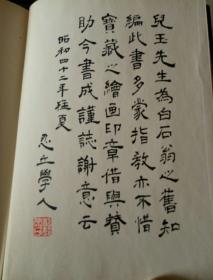 兒玉先生為白石翁之舊知
編此書多蒙指教亦不惜
寶藏之繪画印章借與贊
助今書成謹誌謝意云
昭和四十二年極夏
忍立學人